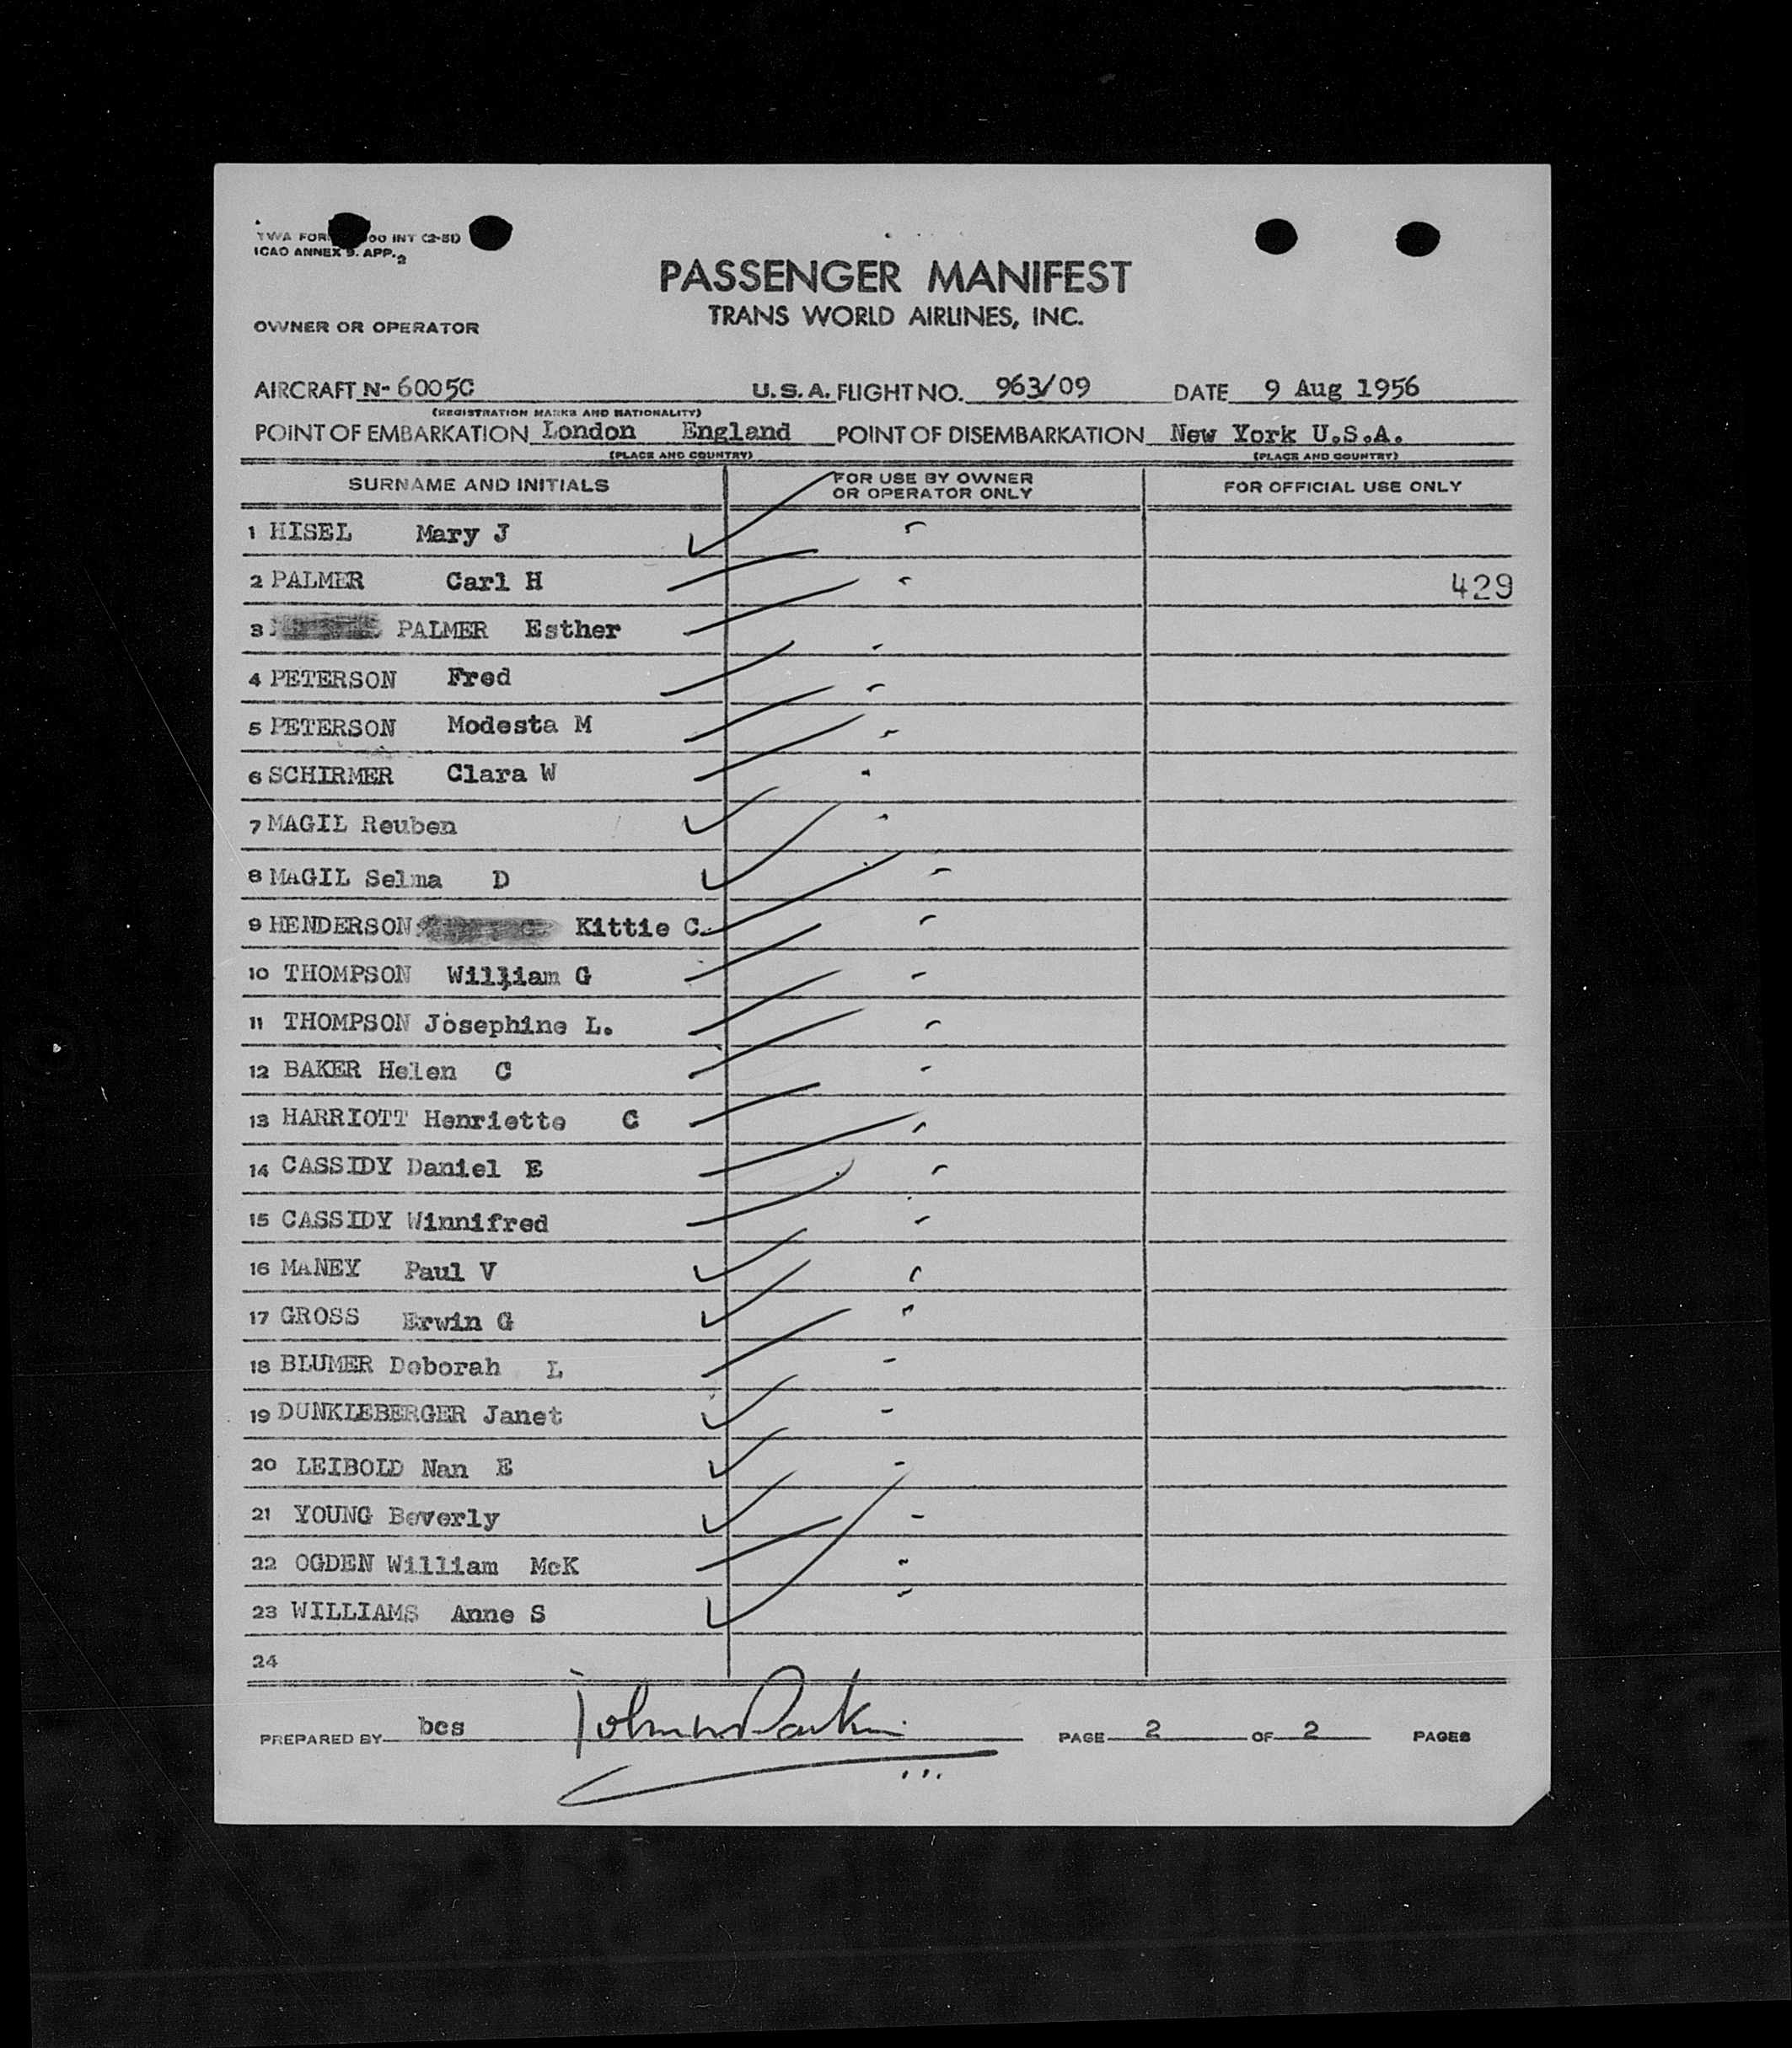 TWA FOR 00 INT (2-51)
ICAO ANNEX 9. APP. 2
PASSENGER MANIFEST
TRANS WORLD AIRLINES, INC.
OWNER OR OPERATOR
AIRCRAFT N- 6005C U.S.A. FLIGHT NO. 963/09 DATE 9 Aug 1956
(REGISTRATION MARKS AND NATIONALITY)
POINT OF EMBARKATION London England POINT OF DISEMBARKATION New York U.S.A.
(PLACE AND COUNTRY) (PLACE AND COUNTRY)
SURNAME AND INITIALS FOR USE BY OWNER OR OPERATOR ONLY FOR OFFICIAL USE ONLY
1 HISEL Mary J
2 PALMER Carl H 429
3 PALMER Esther
4 PETERSON Fred
5 PETERSON Modesta M
6 SCHIRMER Clara W
7 MAGIL Reuben
8 MAGIL Selma D
9 HENDERSON Kittie C.
10 THOMPSON William G
11 THOMPSON Josephine L.
12 BAKER Helen C
13 HARRIOTT Henriette C
14 CASSIDY Daniel E
15 CASSIDY Winnifred
16 MANEY Paul V
17 GROSS Erwin G
18 BLUMER Deborah L
19 DUNKLEBERGER Janet
20 LEIBOLD Nan E
21 YOUNG Beverly
22 OGDEN William McK
23 WILLIAMS Anne S
24
PREPARED BY bcs PAGE 2 OF 2 PAGES